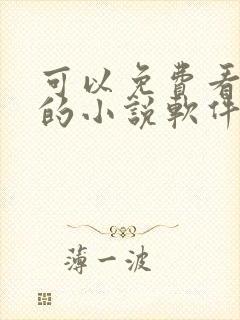 可以免費看
的小說軟件
薄一波